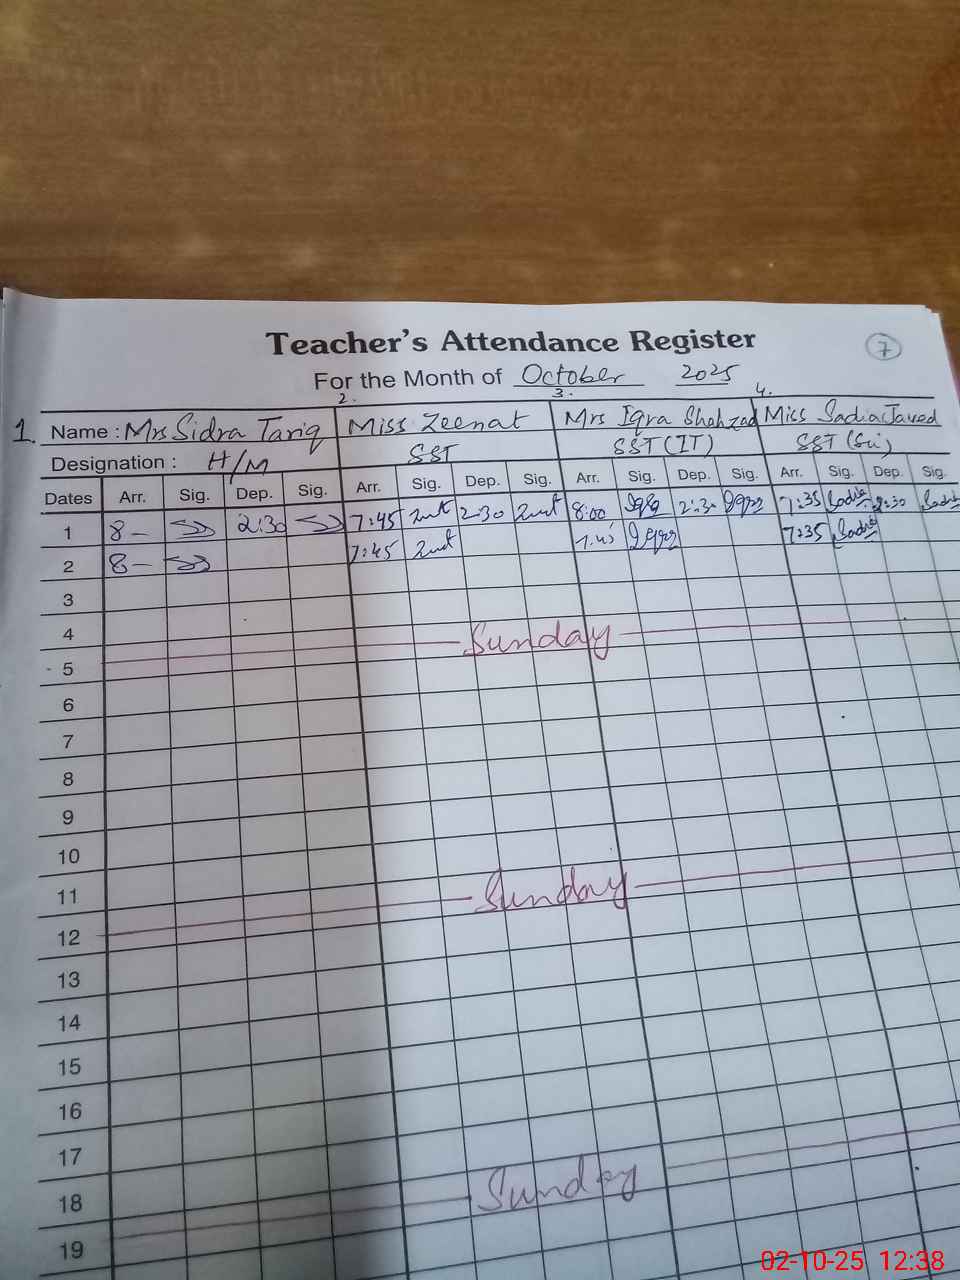 Teacher's Attendance Register
7
For the Month of October 2025
2. 3. 4.
1. Name : Mrs Sidra Tariq Miss Zeenat Mrs Iqra Shahzad Miss Sadia Javed
Designation : H/M SST SST (IT) SST (Sci)
Dates Arr. Sig. Dep. Sig. Arr. Sig. Dep. Sig. Arr. Sig. Dep. Sig. Arr. Sig. Dep. Sig.
1 8- 2:30 7:45 2:30 8:00 Iqra 2:30 Iqra 7:35 Sadia 2:30 Sadia
2 8- 7:45 7:45 Iqra 7:35 Sadia
3
4
5 Sunday
6
7
8
9
10
11
12 Sunday
13
14
15
16
17
18
19 Sunday
02-10-25 12:38